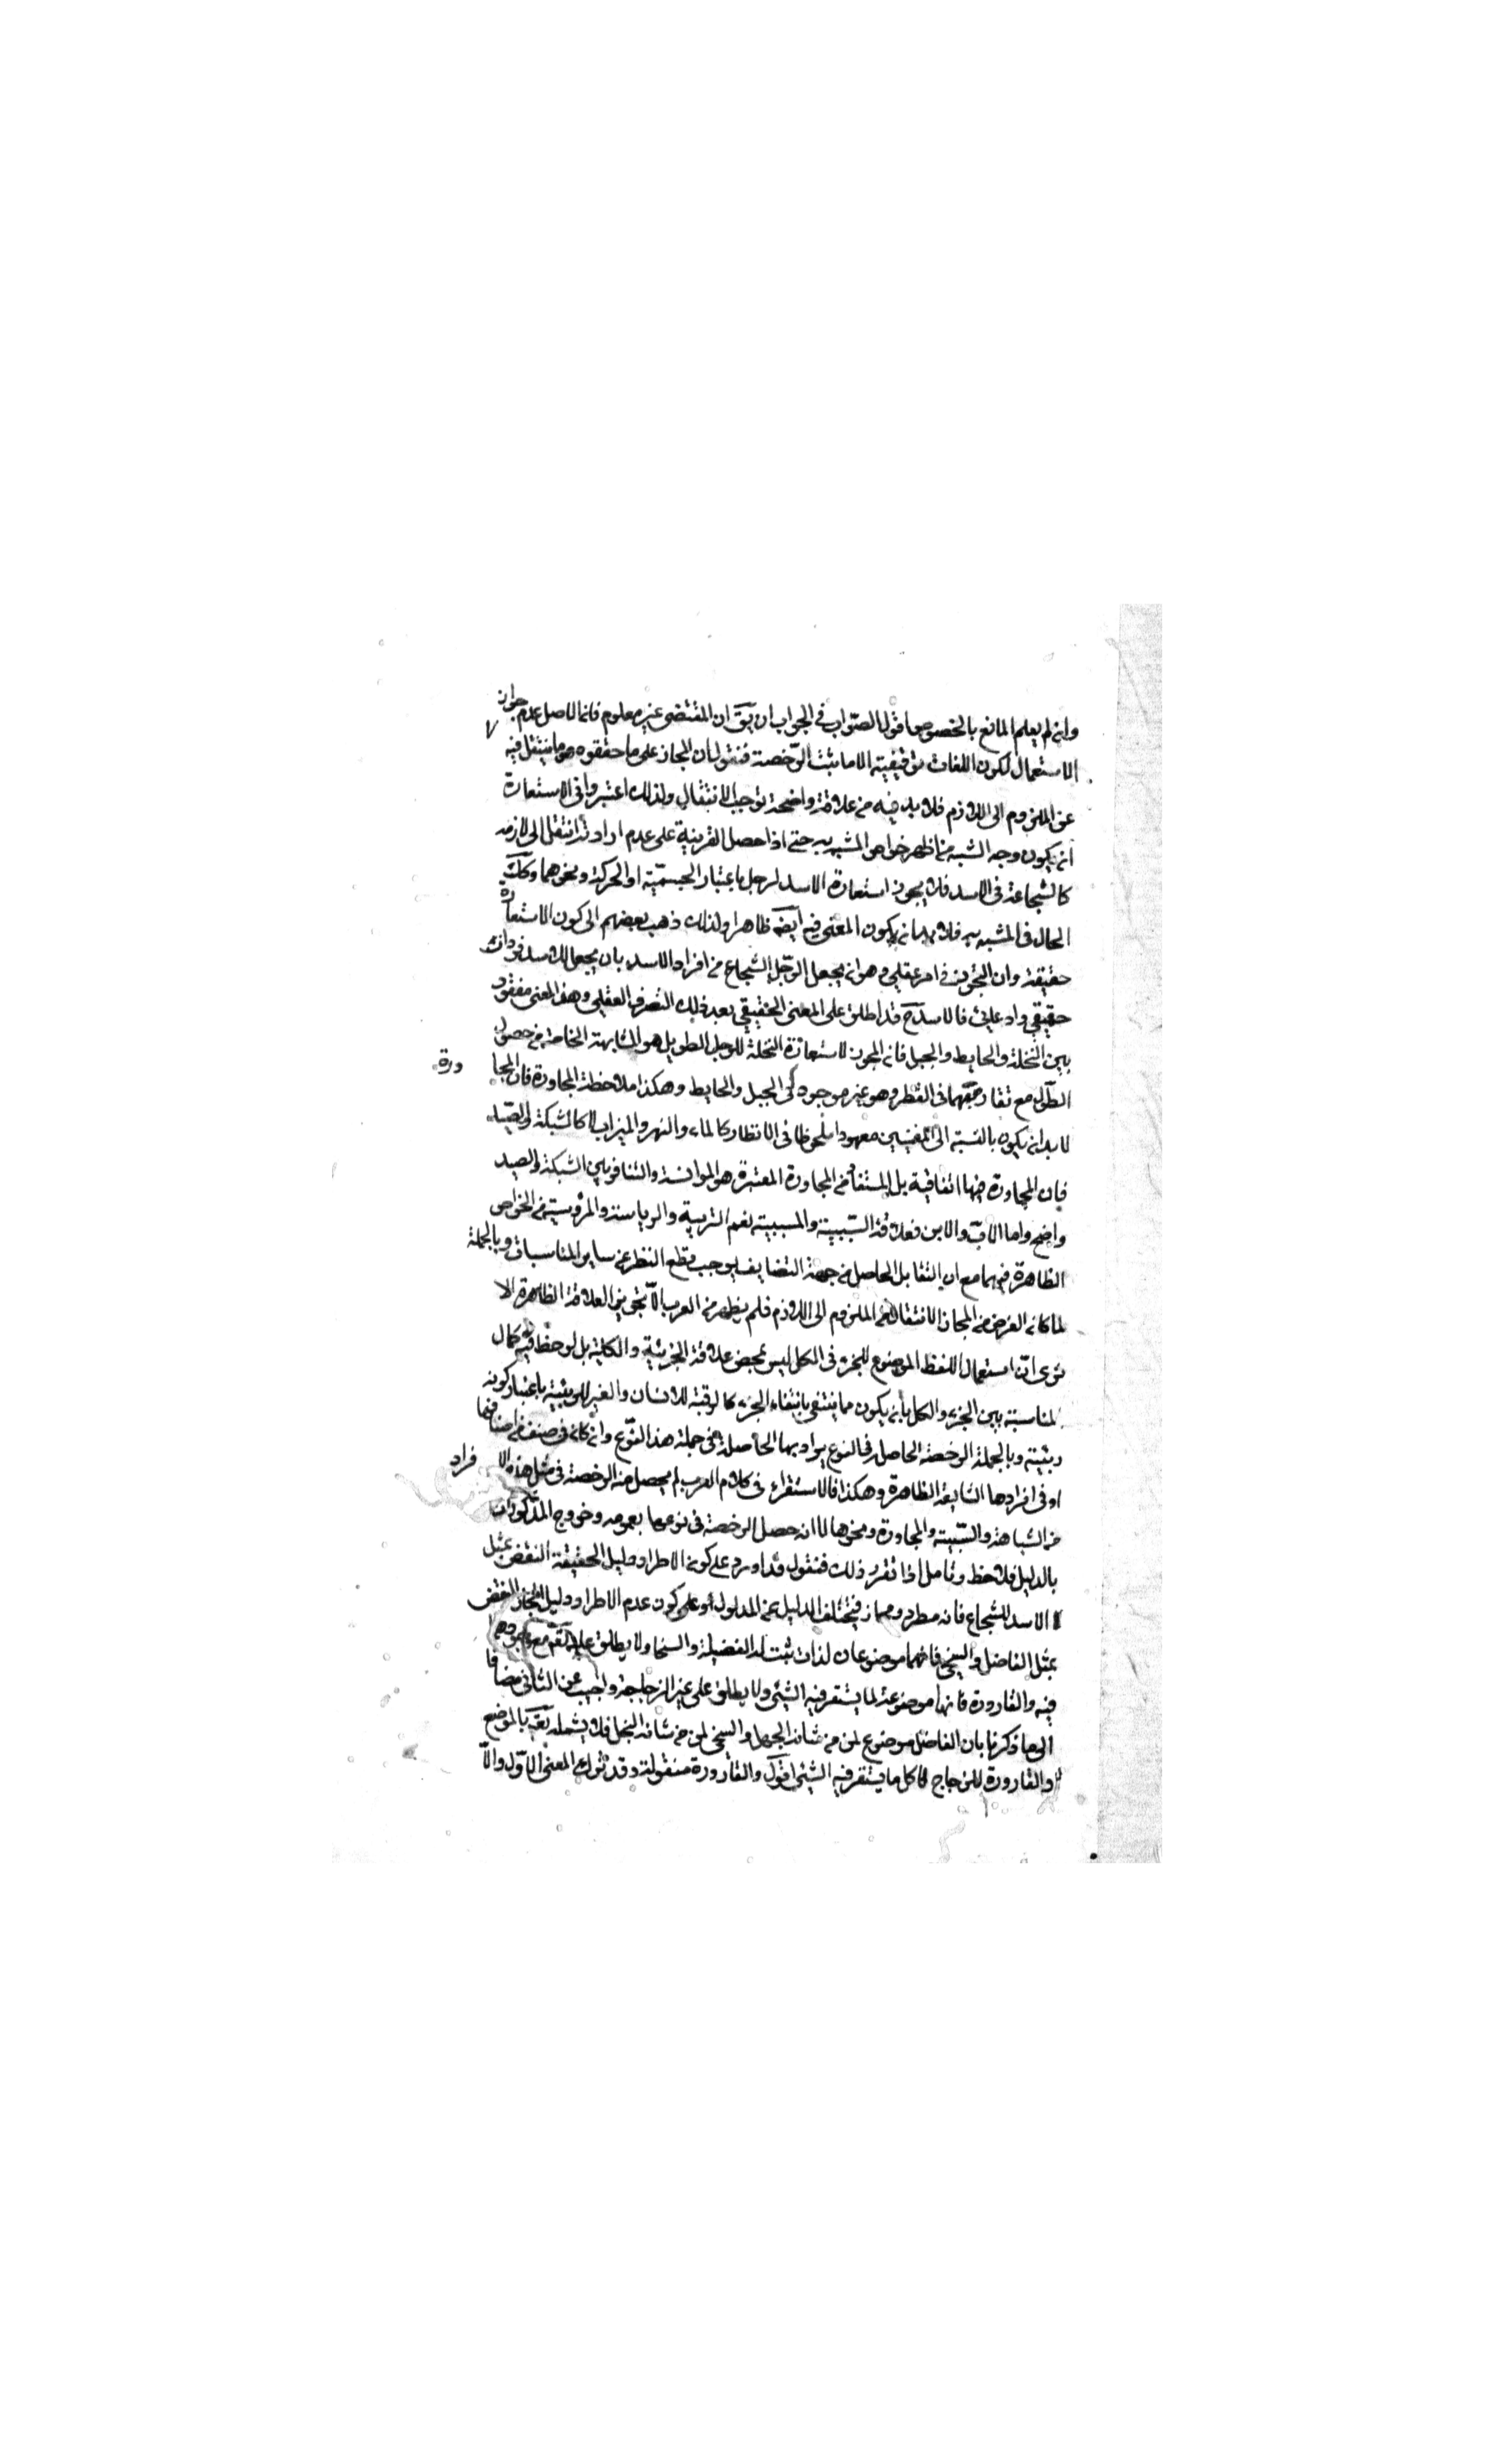 وان لم يعلم المانع بالخصوص اقول الصواب في الجواب ان يق ان المقتضى غير معلوم فان الاصل عدم جواز
الاستعمال لكون اللغات توقيفية الا ما ثبت الرخصة فنقول ان المجاز على ما حققوه هو ما ينتقل فيه
عن الملزوم الى اللازم فلا بد فيه من علاقة واضحة توجب الانتقال ولذلك اعتبروا في الاستعارة
ان يكون وجه الشبه من اظهر خواص المشبه به حتى اذا حصل القرينة على عدم ارادته انتقل الى لازمه
كالشجاعة في الاسد فلا يجوز استعارة الاسد لرجل باعتبار الجسمية او الحركة ونحوهما وكك
الحال في المشبه به فلا بد ان يكون المعنى فيه ايضا ظاهرا ولذلك ذهب بعضهم الى كون الاستعارة
حقيقة وان التجوز في امر عقلي وهو ان يجعل الرجل الشجاع من افراد الاسد بان يجعل للاسد فردان
حقيقي وادعائي فالاسد ح قد اطلق على المعنى الحقيقي بعد ذلك التصرف العقلي وهذا المعنى مفقود
بين النخلة والحايط والجبل فان المجوز لاستعارة النخلة للرجل الطويل هو المشابهة الخاصة من حصول
الطول مع تقاربهما في القطر وهو غير موجود في الجبل والحايط وهكذا ملاحظة المجاورة فان المجاورة
لا بد ان يكون بالنسبة الى المعنيين معهودا ملحوظا في الانظار كالماء والنهر والميزاب لا كالشبكة والصيد
فان المجاورة فيها اتفاقية بل المستفاد من المجاورة المعتبرة هو الموانسة والتنافر بين الشبكة والصيد
واضح واما الاب والابن فعلاقة السببية والمسببية نعم التربية والرياسة والمرؤسية من الخواص
الظاهرة فيهما مع ان التقابل الحاصل من جهة التضايف يوجب قطع النظر عن ساير المناسبات وبالجملة
لما كان الغرض من المجاز الانتقال عن الملزوم الى اللازم فلم يظهر من العرب الا تجويز العلاقة الظاهرة الا
ترى ان استعمال اللفظ الموضوع للجزء في الكل ليس بمحض علاقة الجزئية والكلية بل لوحظ فيه كمال
المناسبة بين الجزء والكل بان يكون مما ينتفي بانتفاء الجزء كالرقبة للانسان والعين للربيئة باعتبار كونه
ربيئة وبالجملة الرخصة الحاصل في النوع يراد بها الحاصلة في جملة هذا النوع وان كان في صنف من اصنافها
او في افرادها الشايعة الظاهرة وهكذا فالاستقراء في كلام العرب لم يحصل منه الرخصة في مثل هذه الافراد
من الشباهة والسببية والمجاورة ونحوها لا انه حصل الرخصة في نوعها بعمومه وخروج المذكورات
بالدليل فلاحظ وتامل اذا تقرر ذلك فنقول قد اورد على كون الاطراد دليل الحقيقة النقض بمثل
الاسد للشجاع فانه مطرد ومجاز فيتخلف الدليل عن المدلول او على كون عدم الاطراد دليل المجاز النقض
بمثل الفاضل والسخي فانهما موضوعان لذات ثبت له الفضيلة والسخا ولا يطلق عليه تع مع وجودهما
فيه والقارورة فانها موضوعة لما يستقر فيه الشئ ولا يطلق على غير الزجاجة واجيب عن الثاني مضافا
الى ما ذكرنا بان الفاضل موضوع لمن من شانه الجهل والسخي لمن من شانه البخل فلا يشمله تع بالوضع
والقارورة للزجاج لا كل ما يستقر فيه الشئ اقول والقارورة منقولة وقد ترك المعنى الاول والا